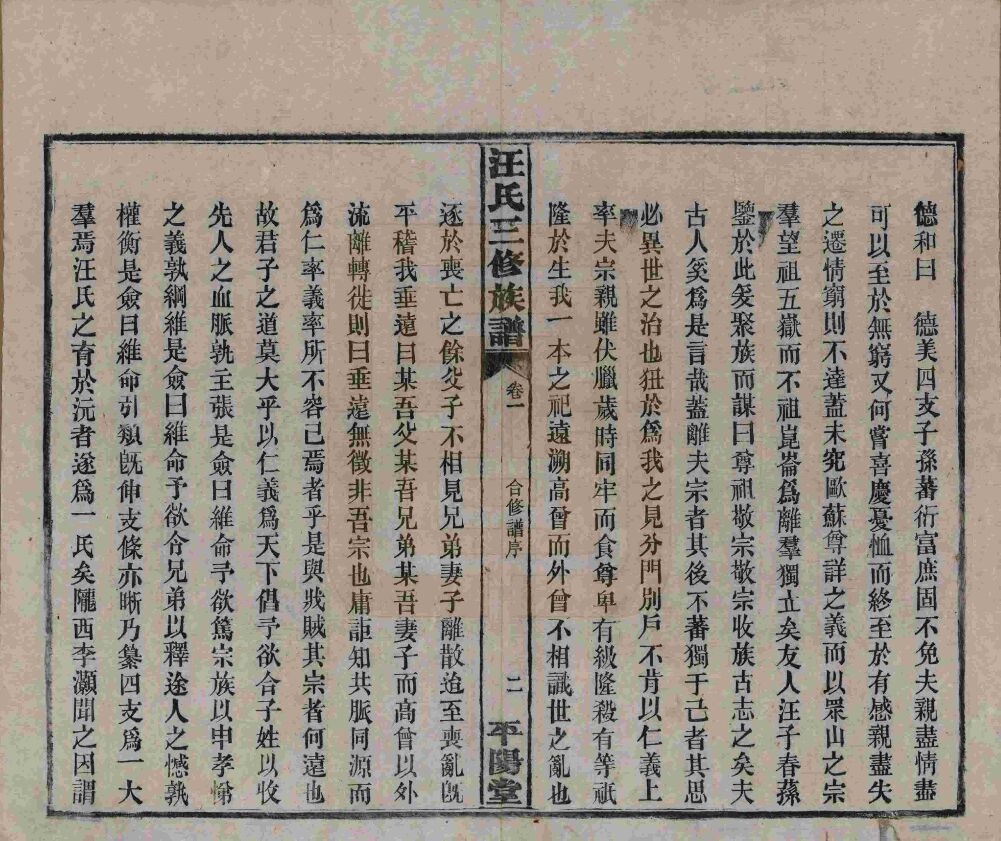 德和曰　德美四支子孫蕃衍富庶固不免夫親盡情盡
可以至於無窮又何嘗喜慶憂恤而終至於有感親盡失
之遷情窮則不達蓋未究歐蘇尊詳之義而以眾山之宗
羣望祖五嶽而不祖崑崙為離羣獨立矣友人汪子春蓀
鑒於此爰聚族而謀曰尊祖敬宗敬宗收族古志之矣夫
古人奚為是言哉蓋離夫宗者其後不蕃獨于己者其思
必異世之治也狃於為我之見分門別戶不肯以仁義上
率夫宗親雖伏臘歲時同牢而食尊卑有級隆殺有等祇
隆於生我一本之祀遠溯高曾而外曾不相識世之亂也
汪氏三修族譜　卷一　合修譜序　二　平陽堂
逐於喪亡之餘父子不相見兄弟妻子離散迨至喪亂旣
平稽我垂遠曰某吾父某吾兄弟某吾妻子而高曾以外
流離轉徙則曰垂遠無徵非吾宗也庸詎知共脈同源而
為仁率義率所不容已焉者乎是與戕賊其宗者何遠也
故君子之道莫大乎以仁義為天下倡予欲合子姓以收
先人之血脈孰主張是僉曰維命予欲篤宗族以申孝悌
之義孰綱維是僉曰維命予欲令兄弟以釋途人之憾孰
權衡是僉曰維命引類旣伸支條亦晰乃纂四支為一大
羣焉汪氏之育於沅者遂為一氏矣隴西李灝聞之因謂